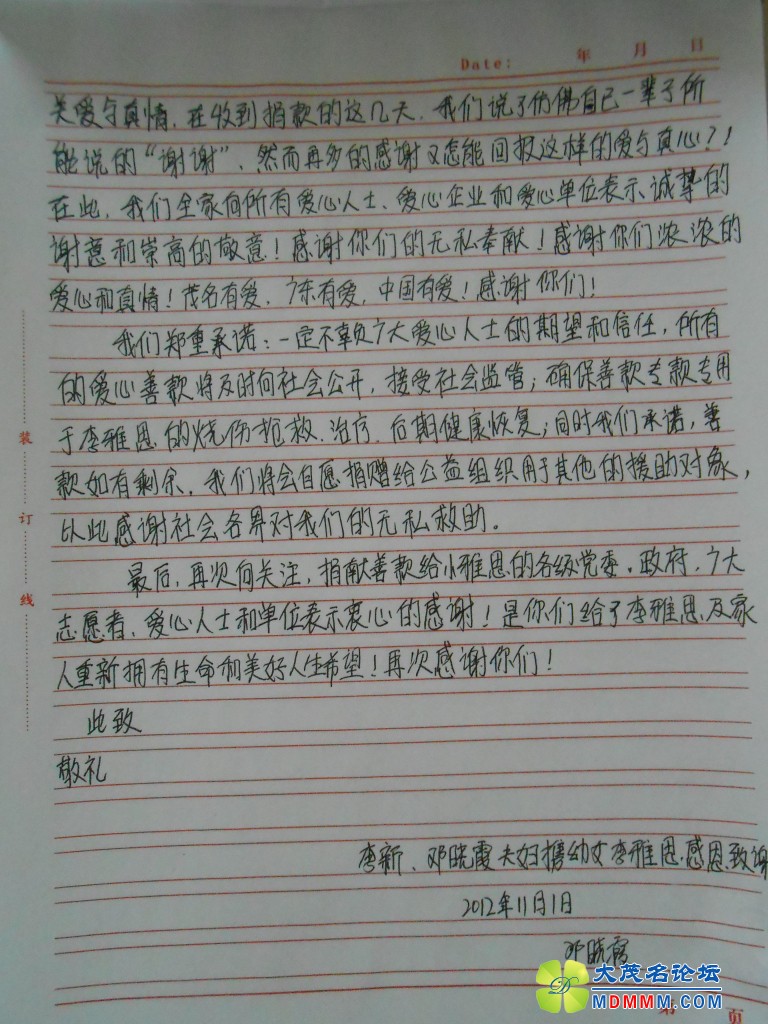 Date: 年 月 日
关爱与真情，在收到捐款的这几天，我们说了仿佛自己一辈子所
能说的“谢谢”，然而再多的感谢又怎能回报这样的爱与真心？！
在此，我们全家向所有爱心人士、爱心企业和爱心单位表示诚挚的
谢意和崇高的敬意！感谢你们的无私奉献！感谢你们浓浓的
爱心和真情！茂名有爱，广东有爱，中国有爱！感谢你们！
我们郑重承诺：一定不辜负广大爱心人士的期望和信任，所有
的爱心善款将及时向社会公开，接受社会监管；确保善款专款专用
于李雅恩的烧伤抢救、治疗、后期健康恢复；同时我们承诺，善
款如有剩余，我们将会自愿捐赠给公益组织用于其他的援助对象，
以此感谢社会各界对我们的无私救助。
最后，再次向关注，捐献善款给小雅恩的各级党委、政府，广大
志愿者，爱心人士和单位表示衷心的感谢！是你们给了李雅恩及家
人重新拥有生命和美好人生希望！再次感谢你们！
此致
敬礼
李新、邓晓霞夫妇携幼女李雅恩感恩致谢
2012年11月1日
邓晓霞
装订线
大茂名论坛
MDMMM.COM
第 页